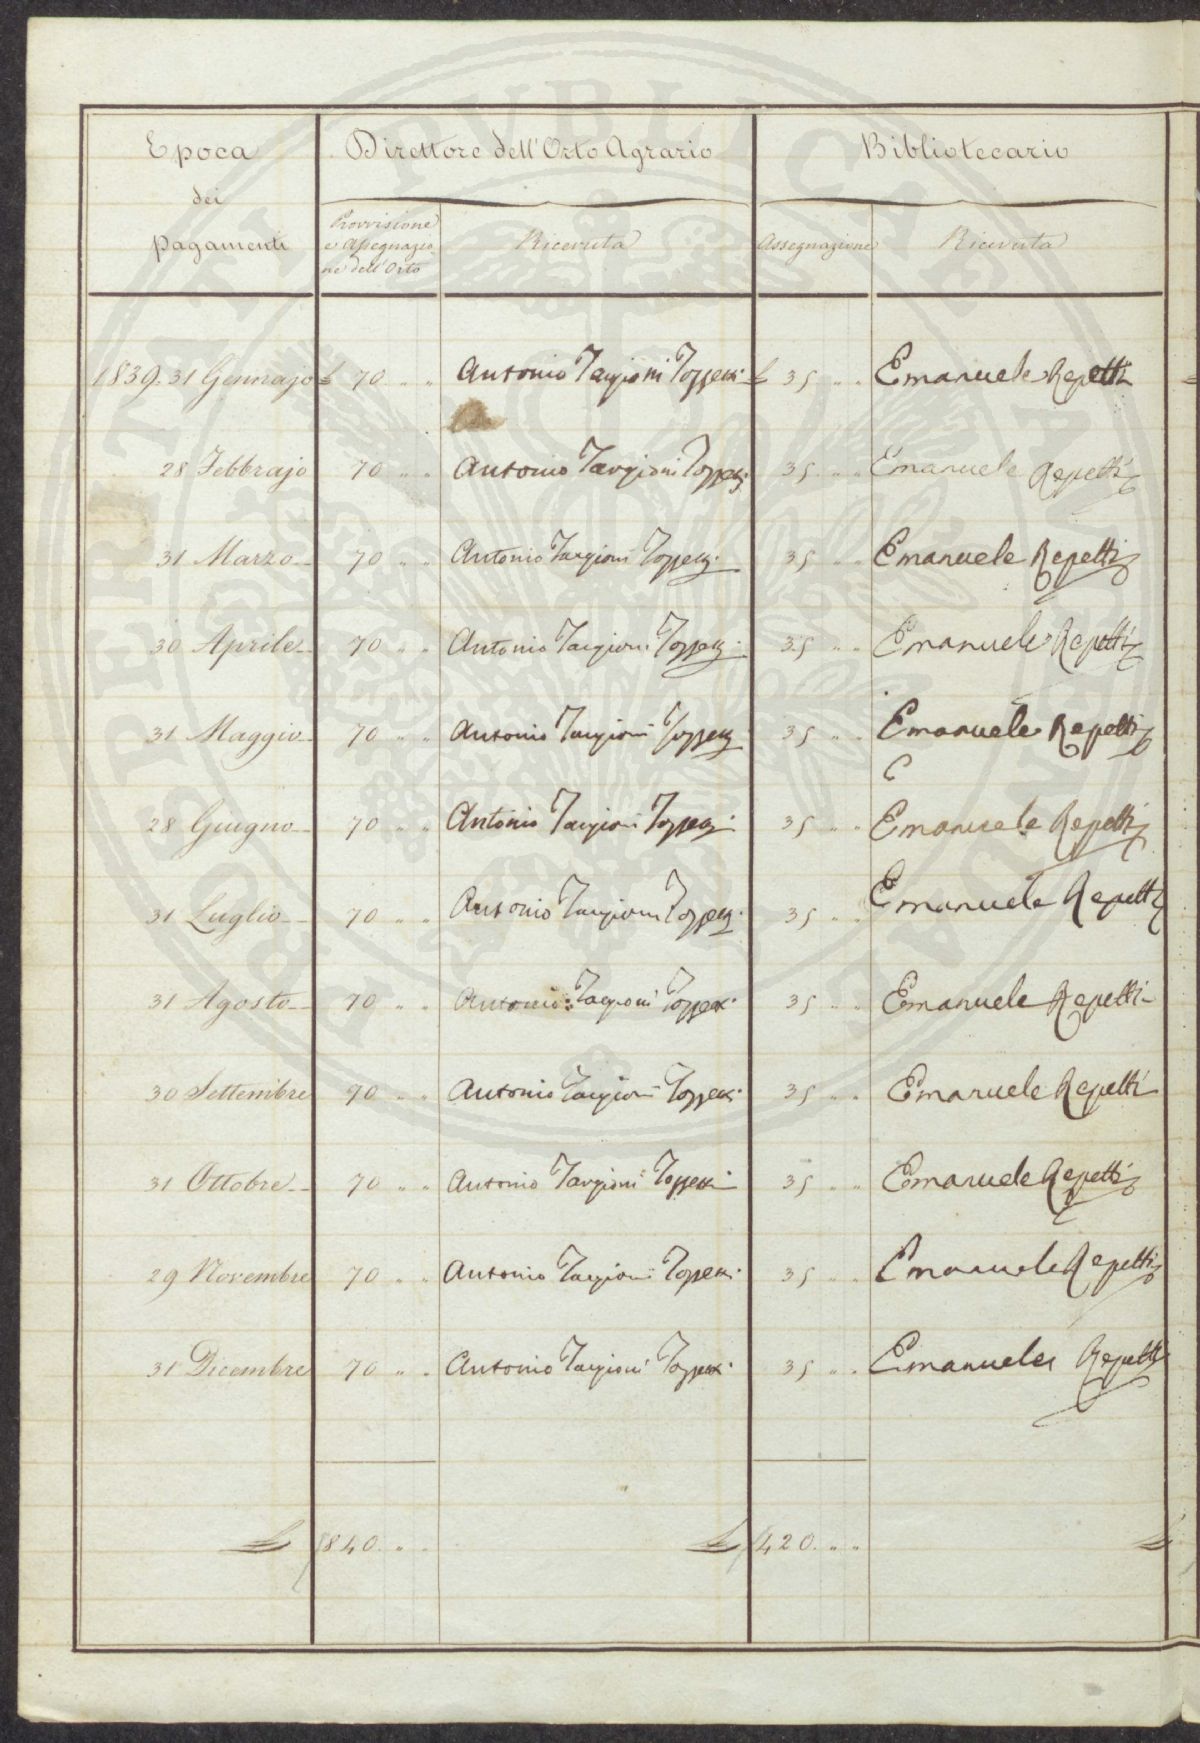 Epoca dei pagamenti
Direttore dell'Orto Agrario
Bibliotecario
Provvisione e Assegnazione dell'Orto
Ricevuta
Assegnazione
Ricevuta
1839. 31 Gennajo £ 70 " " Antonio Targioni Tozzetti £ 35 " " Emanuele Repetti
28 Febbrajo 70 " " Antonio Targioni Tozzetti 35 " " Emanuele Repetti
31 Marzo 70 " " Antonio Targioni Tozzetti 35 " " Emanuele Repetti
30 Aprile 70 " " Antonio Targioni Tozzetti 35 " " Emanuele Repetti
31 Maggio 70 " " Antonio Targioni Tozzetti 35 " " Emanuele Repetti
28 Giugno 70 " " Antonio Targioni Tozzetti 35 " " Emanuele Repetti
31 Luglio 70 " " Antonio Targioni Tozzetti 35 " " Emanuele Repetti
31 Agosto 70 " " Antonio Targioni Tozzetti 35 " " Emanuele Repetti
30 Settembre 70 " " Antonio Targioni Tozzetti 35 " " Emanuele Repetti
31 Ottobre 70 " " Antonio Targioni Tozzetti 35 " " Emanuele Repetti
29 Novembre 70 " " Antonio Targioni Tozzetti 35 " " Emanuele Repetti
31 Dicembre 70 " " Antonio Targioni Tozzetti 35 " " Emanuele Repetti
£ 840 " " £ 420 " " £